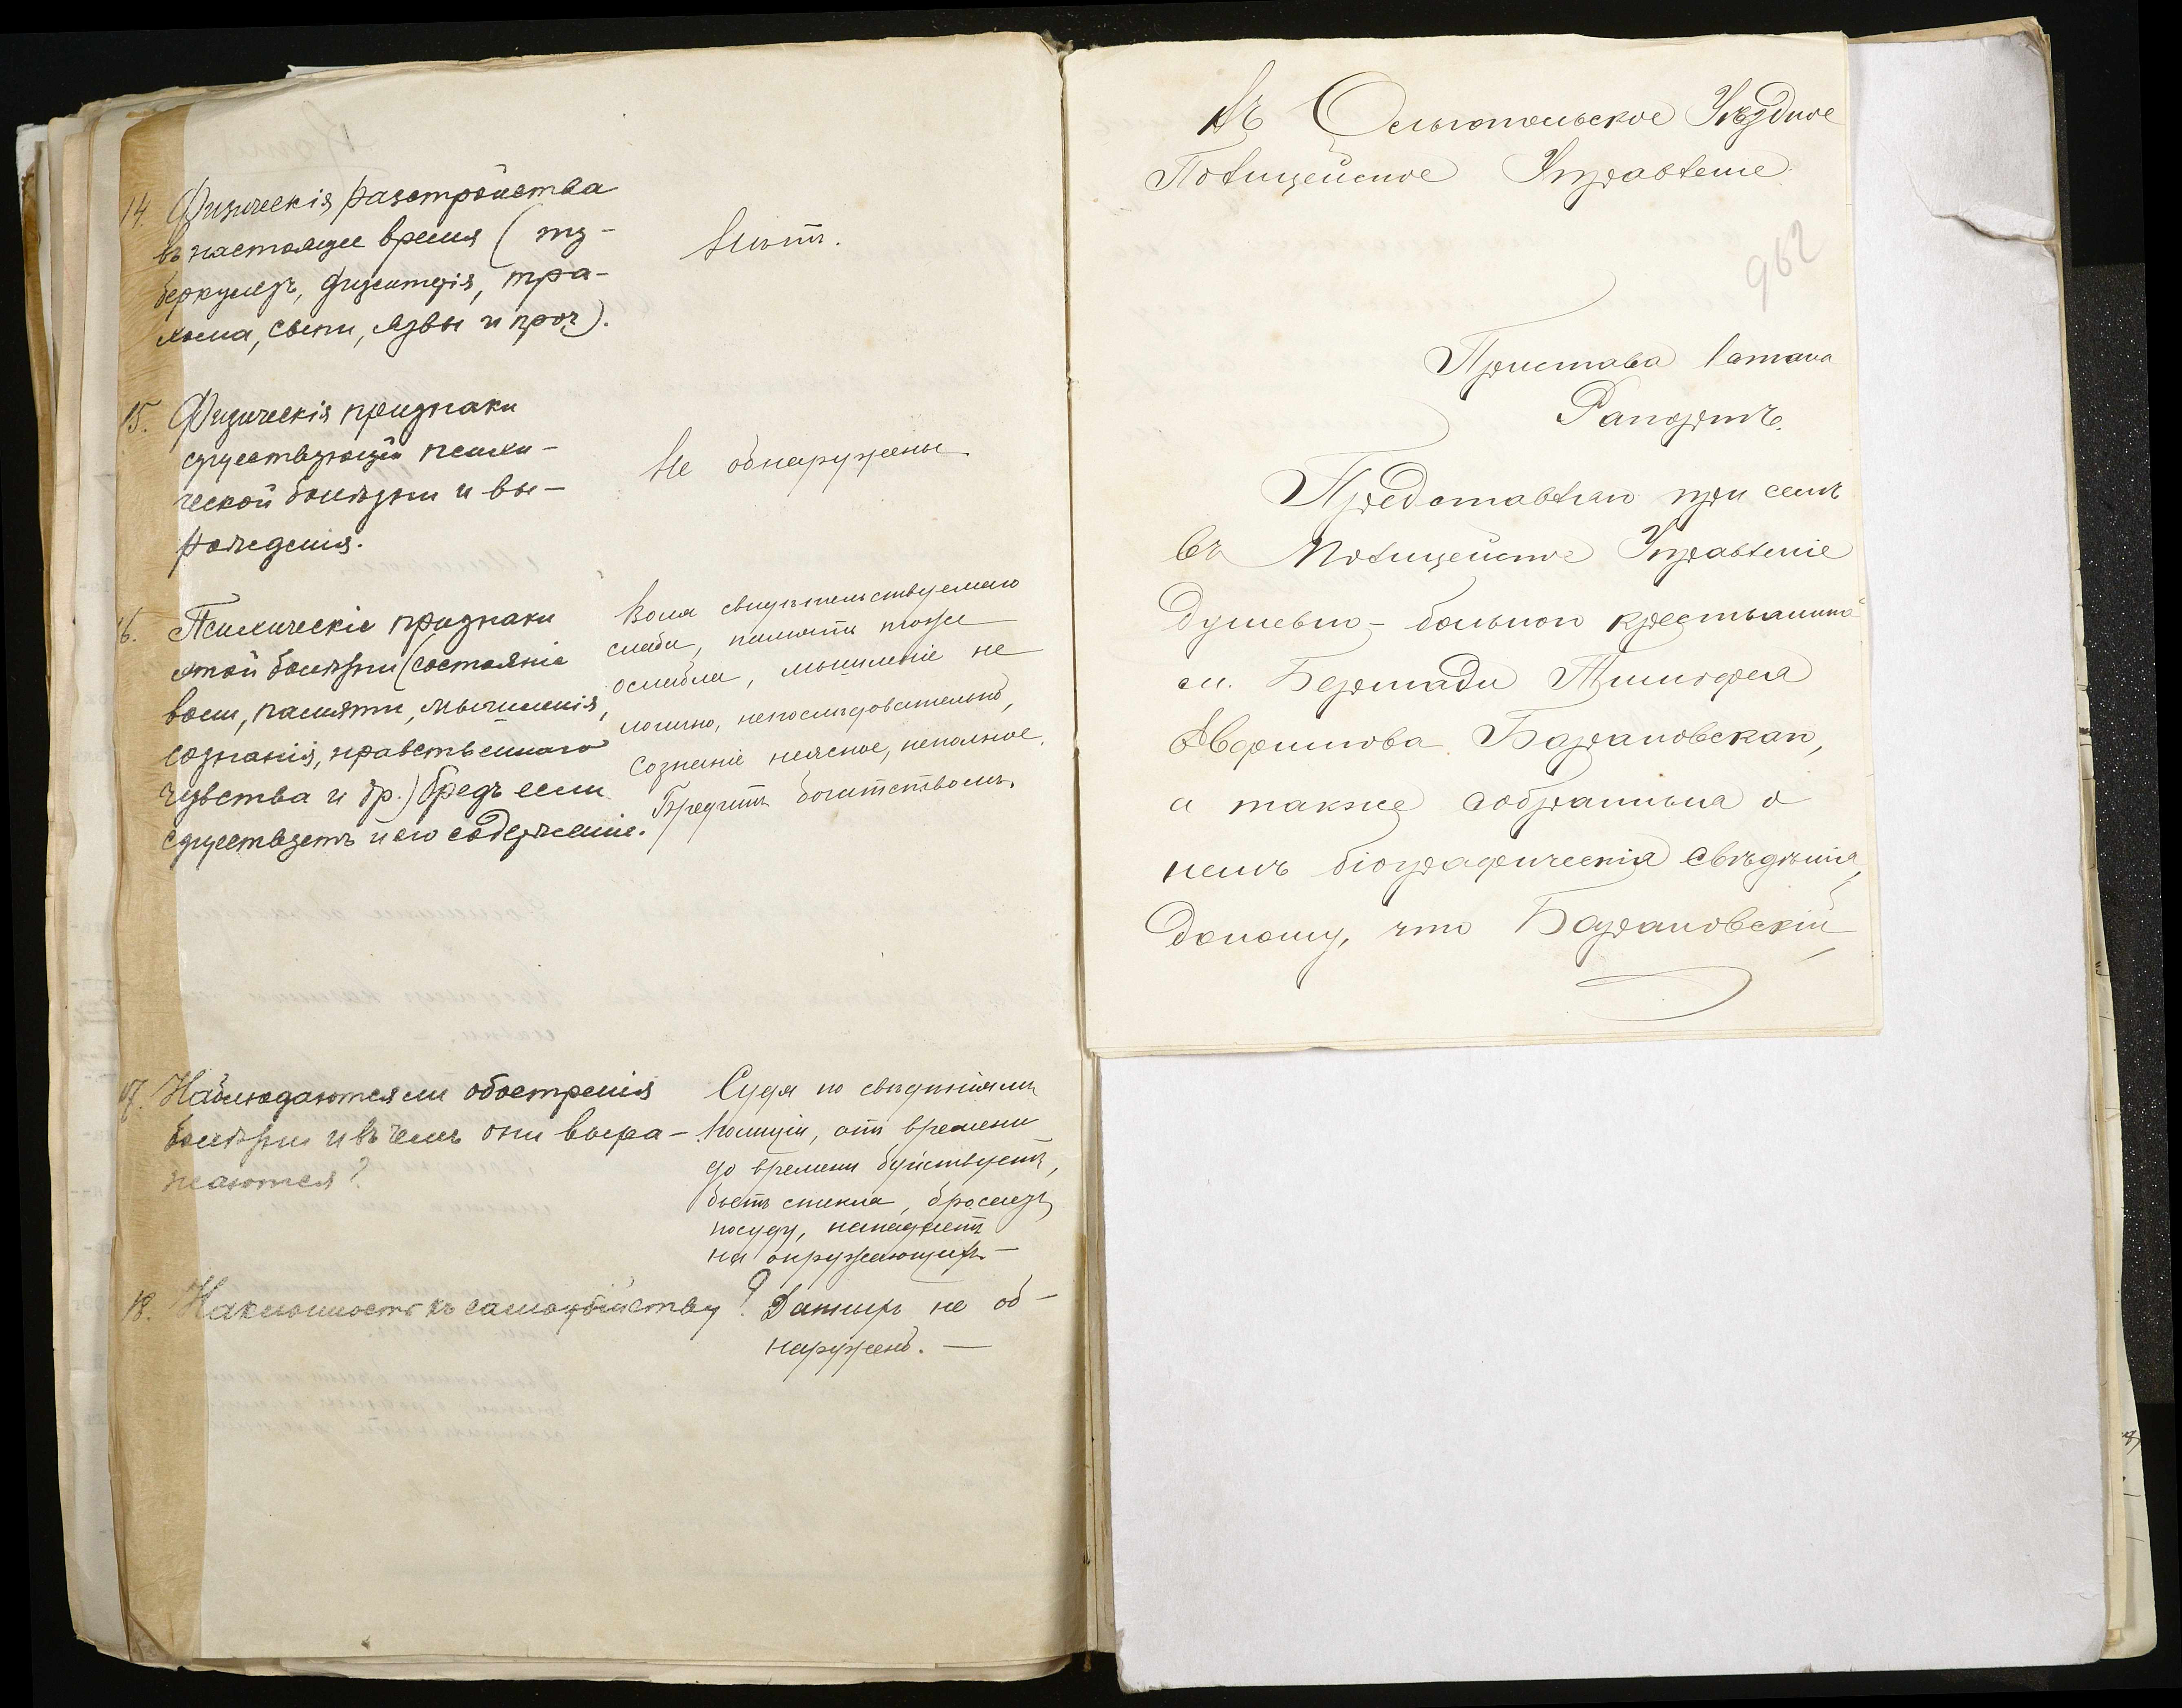 14. Физическія разстройства
въ настоящее время (ту-
беркулезъ, дизентерія, тра-
хома, сыпи, язвы и проч).
Нѣтъ.
15. Физическія признаки
существующей психи-
ческой болѣзни и вы-
рожденія.
Не обнаружены
16. Психическіе признаки
этой болѣзни (состояніе
воли, памяти, мышленія,
сознанія, нравственнаго
чувства и др.) бредъ если
существуетъ и его содержаніе.
Воля свидѣтельствуемаго
слаба, память тоже
ослабла, мышленіе не
логично, непослѣдовательно,
Сознаніе неясное, неполное.
Бредитъ богатствомъ.
17. Наблюдаются ли обостренія
болѣзни и въ чемъ они выра-
жаются?
Судя по свѣдѣніямъ
полиціи, отъ времени
до времени буйствуетъ,
бьетъ стекла, бросаетъ
посуду, нападаетъ
на окружающихъ —
18. Наклонность къ самоубійству?
Таковыхъ не об-
наружено. —
Въ Ольгопольское Уѣздное
Полицейское Управленіе
962
Пристава 1 стана
Рапортъ.
Представляя при семъ
въ Полицейское Управленіе
душевно-больного крестьянина
м. Бершади Тимофея
Барановскаго,
а также собранныя о
немъ біографическія свѣдѣнія,
доношу, что Барановскій